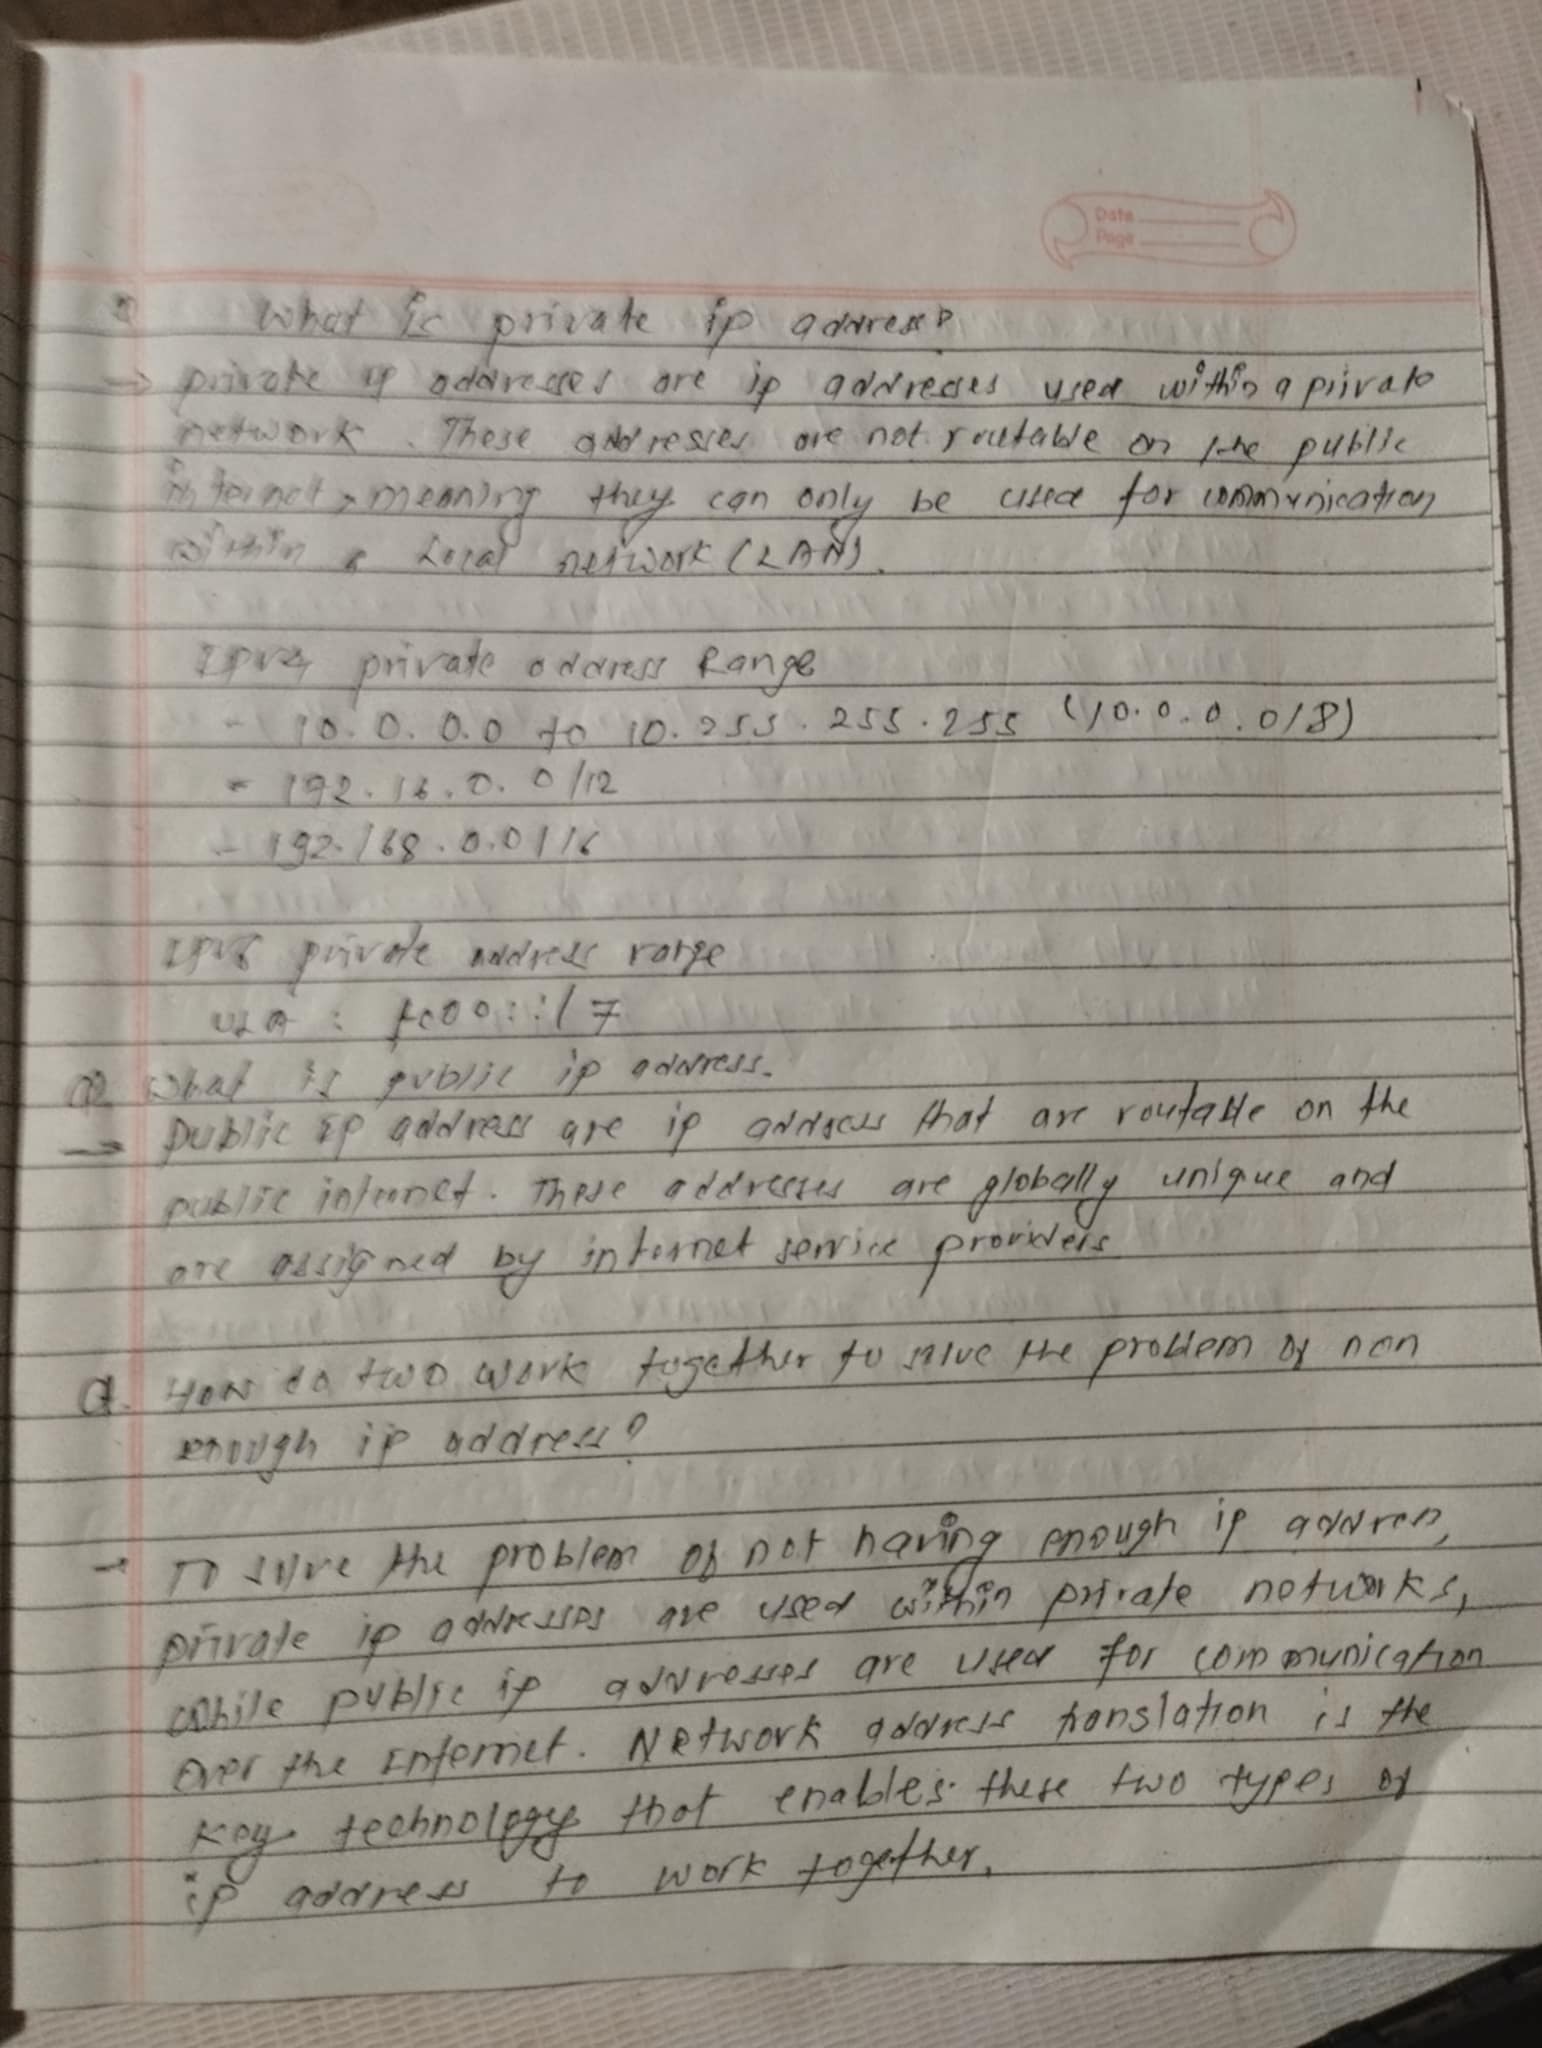 Date
Page
What is private ip address?
→ private ip addresses are ip addresses used within a private
network. These addresses are not routable on the public
internet, meaning they can only be used for communication
within a Local network (LAN).
IPV4 private address Range
- 10.0.0.0 to 10.255.255.255 (10.0.0.0/8)
- 192.16.0.0/12
- 192.168.0.0/16
IPV6 private address range
ULA : fc00::/7
Q. What is public ip address.
→ Public IP address are ip address that are routable on the
public internet. These addresses are globally unique and
are assigned by internet service providers
Q. How do two work together to solve the problem of non
enough ip address?
→ To solve the problem of not having enough ip address,
private ip addresses are used within private networks,
while public ip addresses are used for communication
over the Internet. Network address translation is the
key technology that enables these two types of
ip address to work together.